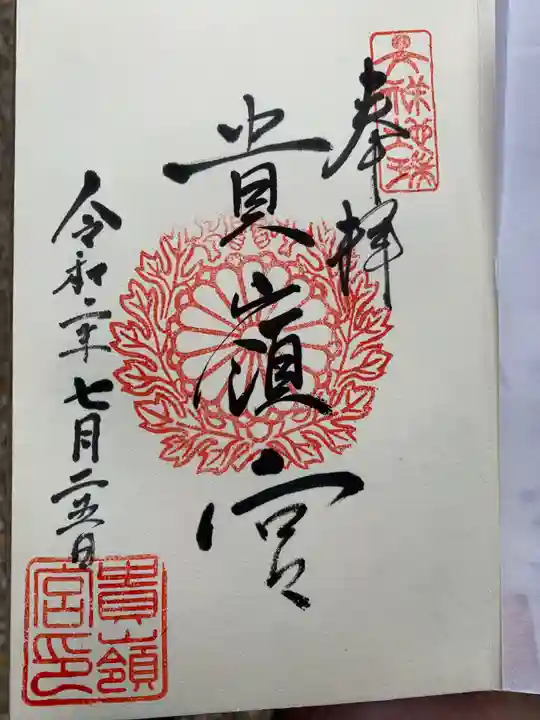 奉拝
貴嶺宮
令和二年七月二五日
貴嶺宮印